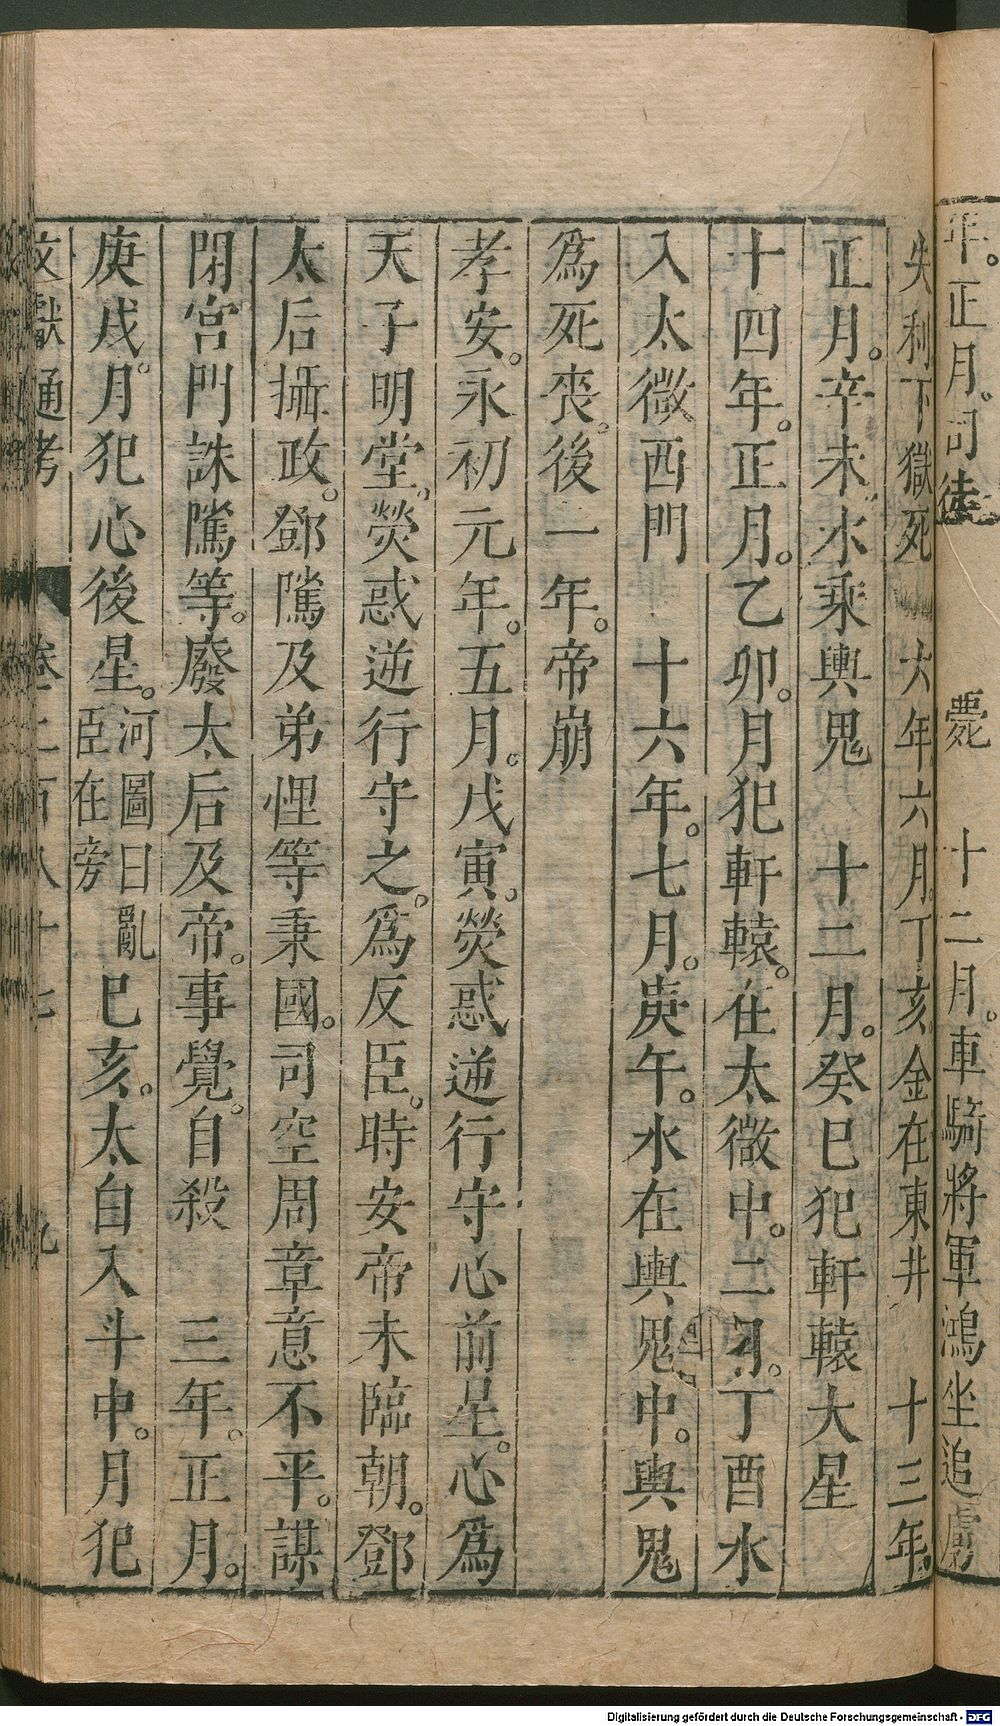 年。正月。司徒　薨　十二月。車騎將軍鴻坐追虜
失利下獄死　六年六月。丁亥金在東井　十三年。
正月。辛未。水乘輿鬼　十二月。癸巳犯軒轅大星
十四年。正月。乙卯。月犯軒轅。在太微中。二月。丁酉水
入太微西門　十六年。七月。庚午。水在輿鬼中。輿鬼
爲死喪。後一年。帝崩
孝安。永初元年。五月。戊寅。熒惑逆行守心前星。心爲
天子明堂。熒惑逆行守之。爲反臣。時安帝未臨朝。鄧
太后攝政。鄧騭及弟悝等秉國。司空周章意不平。謀
閉宮門誅騭等。廢太后及帝。事覺。自殺　三年。正月。
庚戌。月犯心後星。河圖曰亂臣在旁　巳亥。太白入斗中。月犯
文獻通考　卷二百八十七　九
Digitalisierung gefördert durch die Deutsche Forschungsgemeinschaft - DFG